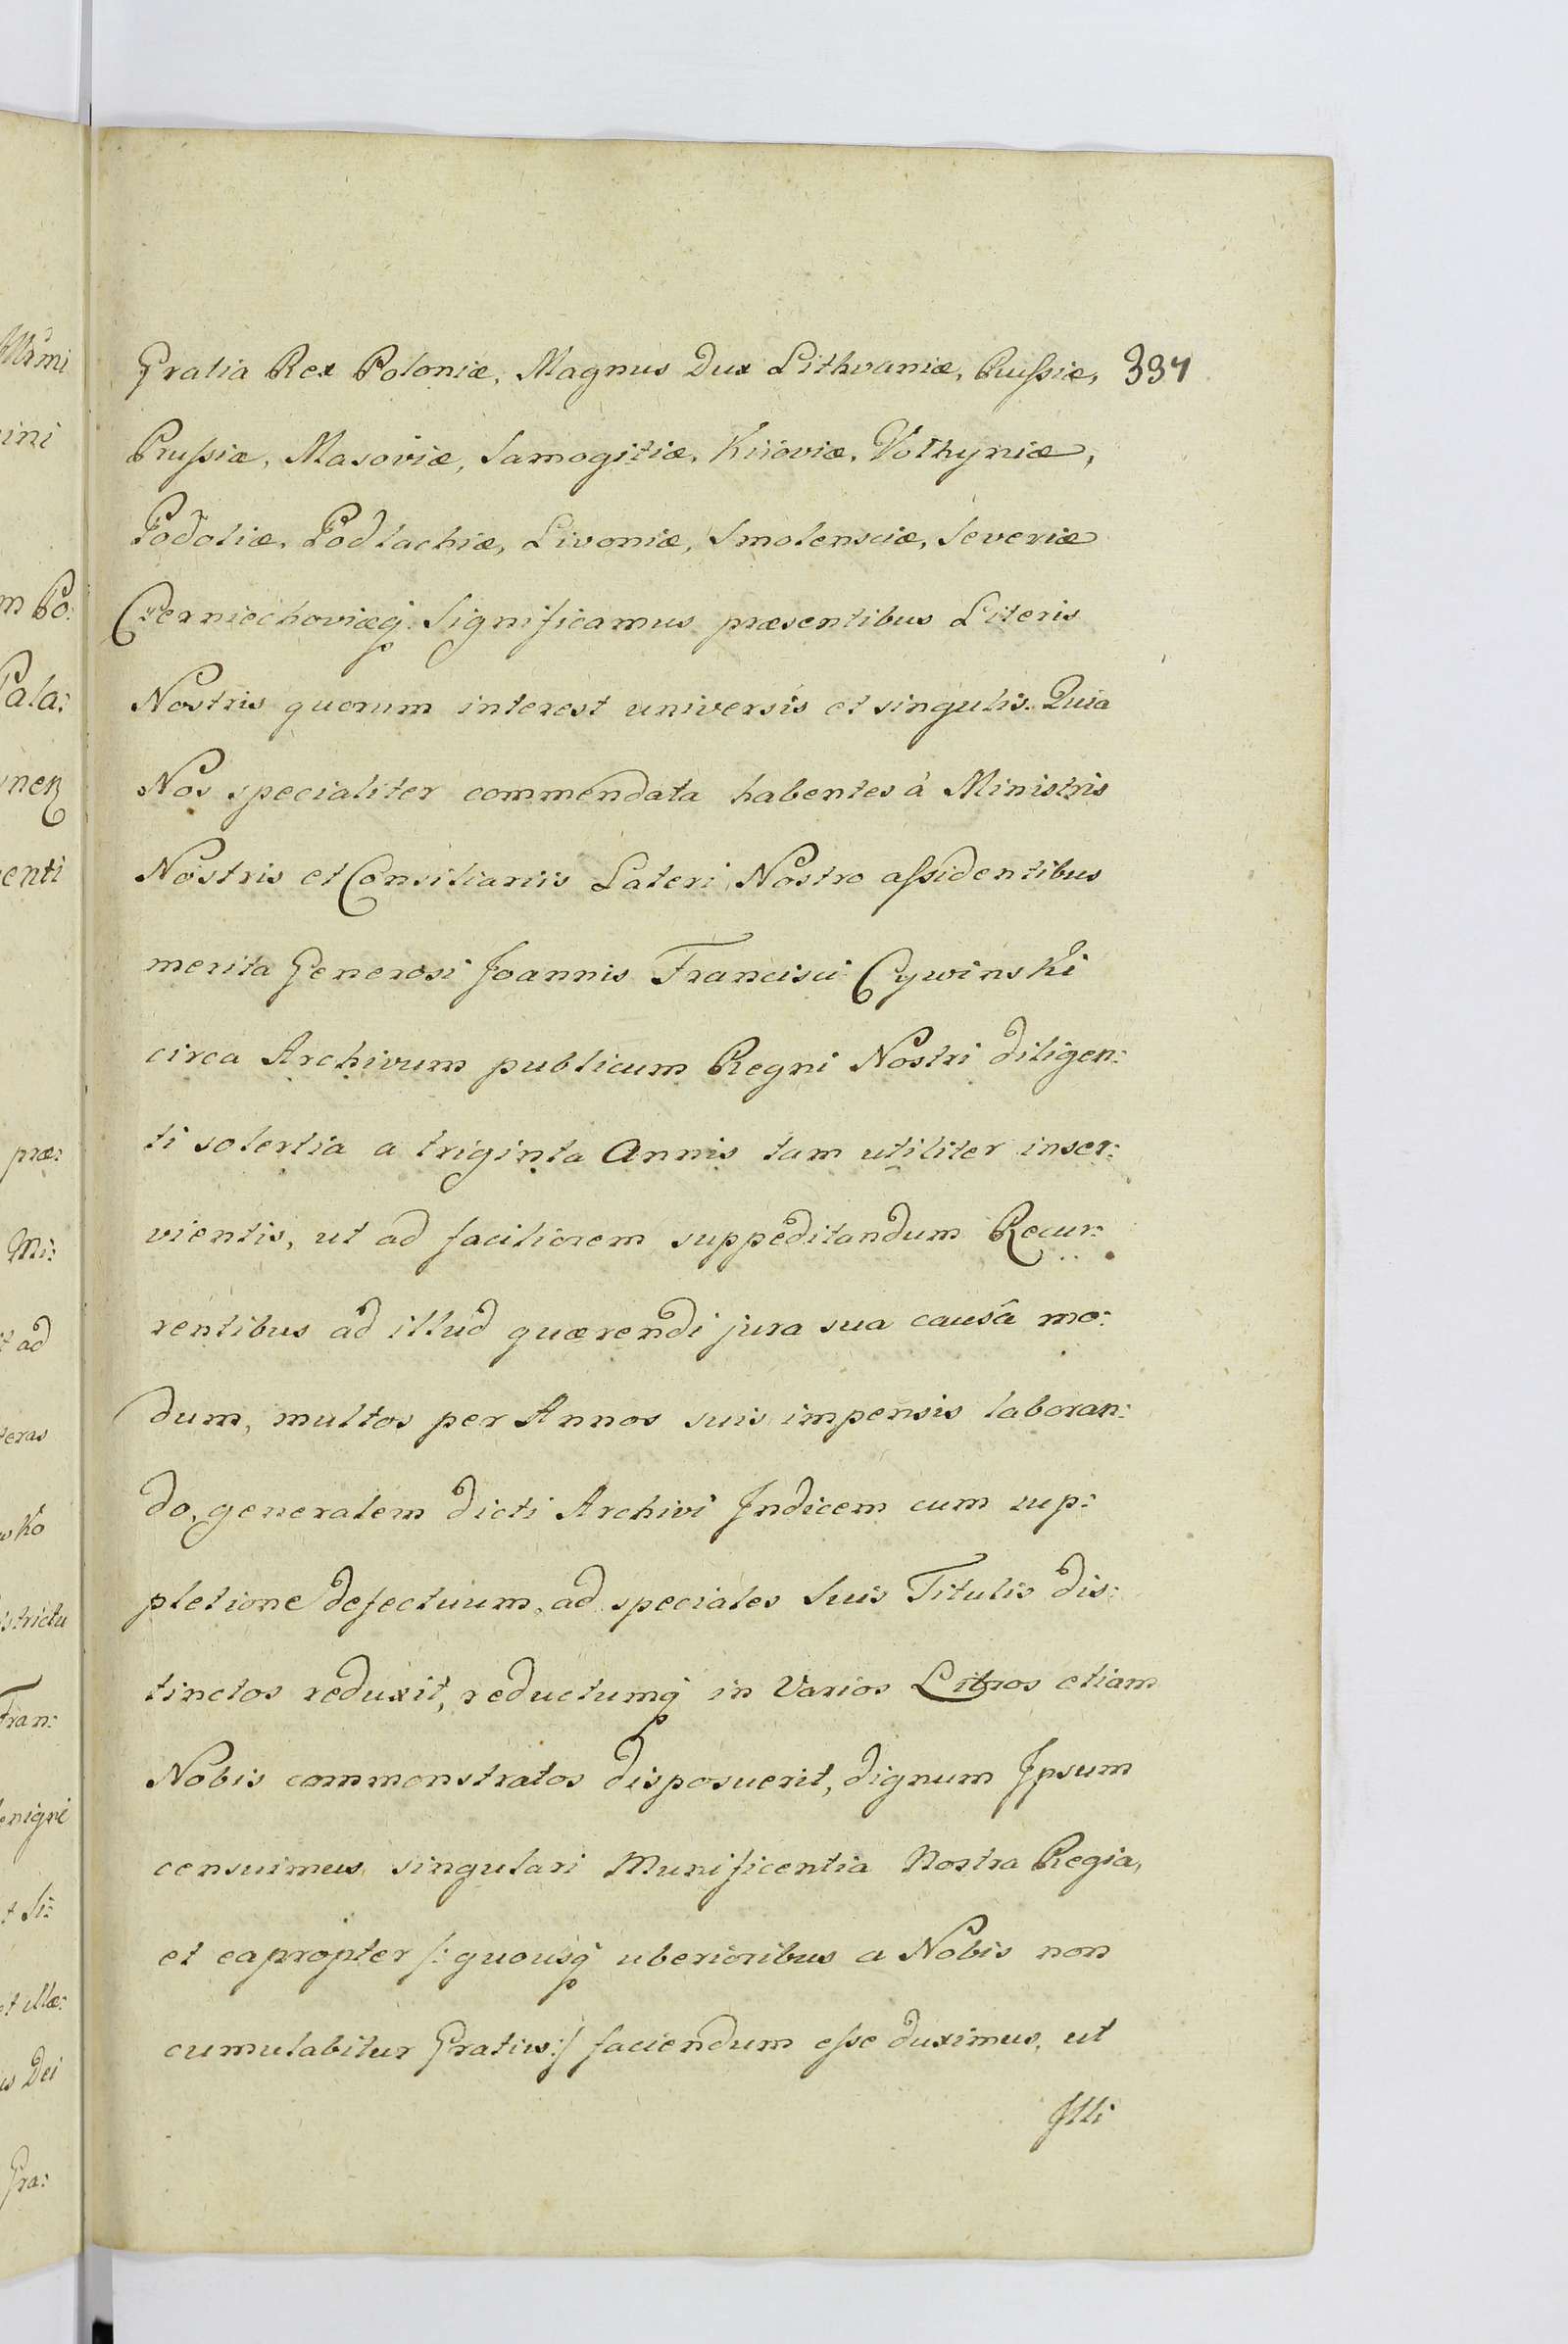 Gratia Rex Poloniæ, Magnus Dux Lithvaniæ, Rußiæ, 331
Prußiæ, Masoviæ, Samogitiæ, Kiioviæ, Volhyniæ,
Podoliæ, Podlachiæ, Livoniæ, Smolensciæ, Severiæ
Czerniechoviæq. Significamus præsentibus Literis
Nostris quorum interest universis et singulis. Quia
Nos specialiter commendata habentes à Ministris
Nostris et Consiliariis Lateri Nostro aßidentibus
merita Generosi Joannis Francisci Cywinski
circa Archivum publicum Regni Nostri diligen:
ti solertia a triginta Annis tam utiliter inser:
vientis, ut ad faciliorem suppeditandum Recur:
rentibus ad illud quærendi jura sua causâ mo:
dum, multos per Annos suis impensis laboran:
do, generalem dicti Archivi Indicem cum sup:
pletione defectuum, ad speciales Suis Titulis dis:
tinctos reduxit, reductumq in Varios Libros etiam
Nobis commonstratos disposuerit, dignum Ipsum
censuimus singulari Munificentia Nostra Regia,
et eapropter /: quousq uberioribus a Nobis non
cumulabitur Gratiis :/ faciendum eße duximus, ut
Illi